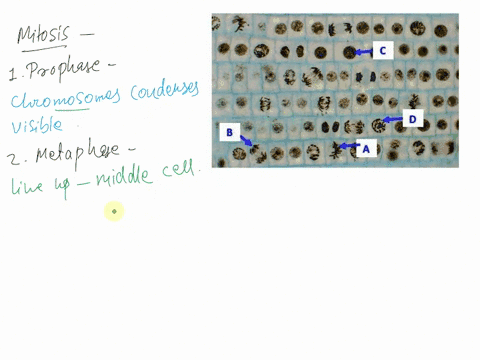 Mitosis -
1. Prophase -
Chromosomes Condenses
visible.
2. Metaphase -
Line up - middle cell.
C
D
B
A